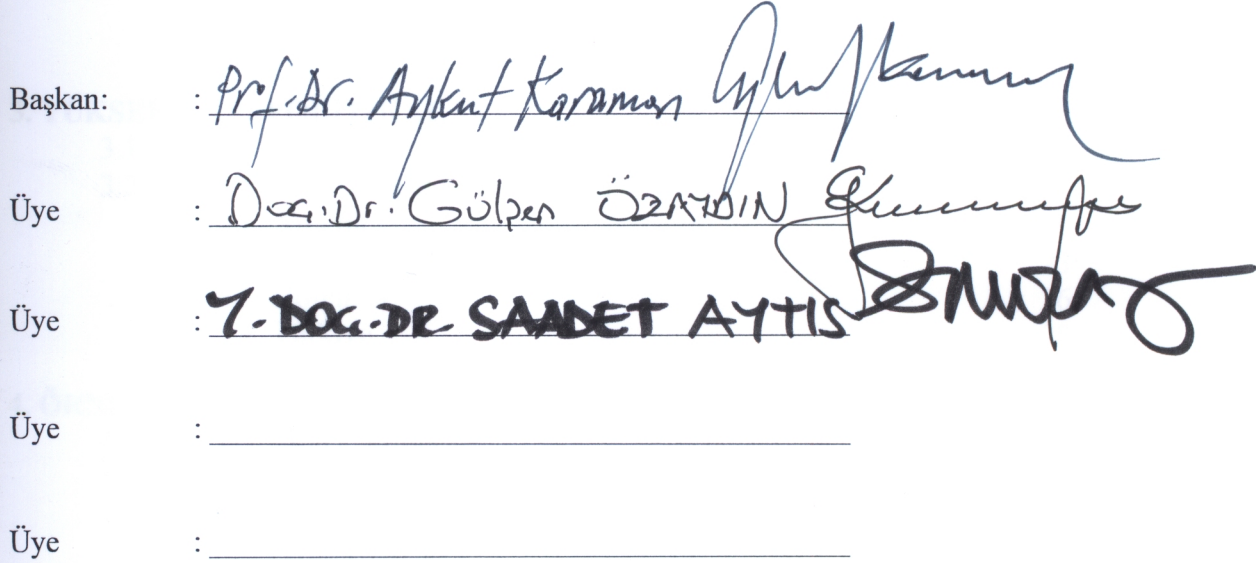 Başkan: : Prof. Dr. Aykut Karaman
Üye : Doç. Dr. Gülşen ÖZAYDIN
Üye : Y. DOÇ. DR. SAADET AYTIS
Üye :
Üye :